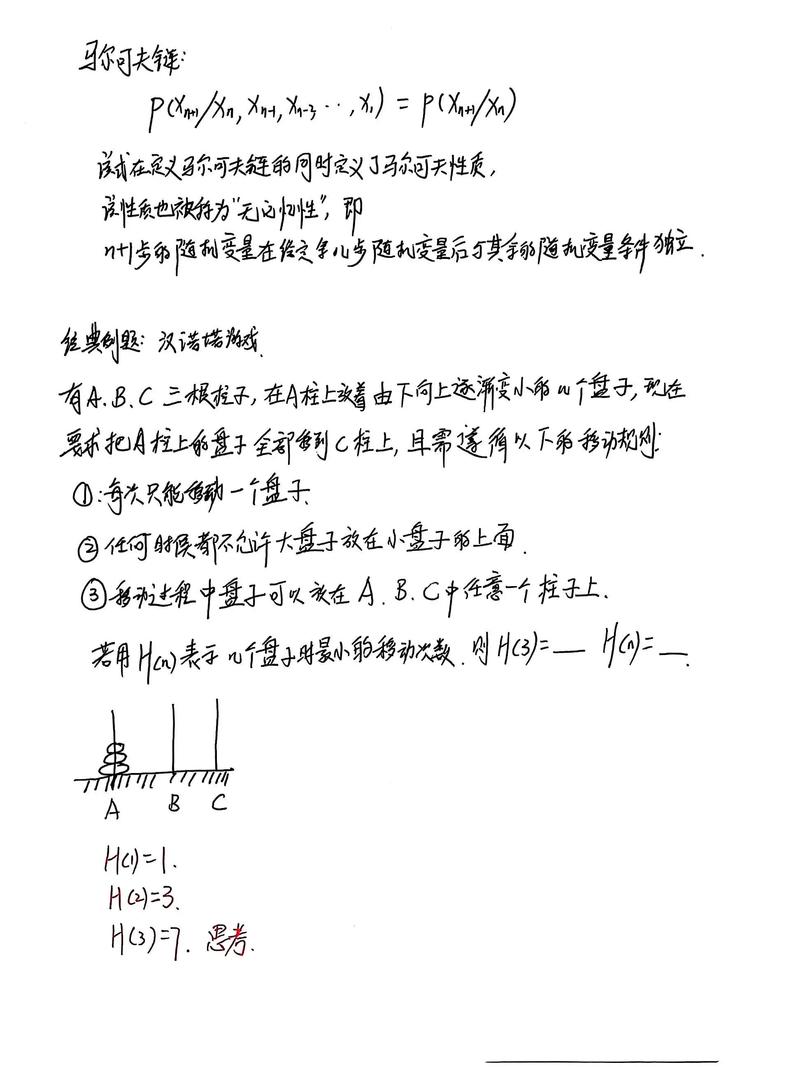 马尔可夫链:
P(Xn+1/Xn, Xn-1, Xn-3 ···, X1) = P(Xn+1/Xn)
该式在定义马尔可夫链的同时定义了马尔可夫性质,
该性质也被称为“无记忆性”, 即
n+1步的随机变量在给定第n步随机变量后与其余的随机变量条件独立.
经典例题: 汉诺塔游戏.
有A.B.C三根柱子,在A柱上放着由下向上逐渐变小的n个盘子,现在
要求把A柱上的盘子全部移到C柱上,且需遵循以下的移动规则:
①:每次只能移动一个盘子.
②任何时候都不允许大盘子放在小盘子的上面.
③移动过程中盘子可以放在A.B.C中任意一个柱子上.
若用H(n)表示n个盘子时最小的移动次数.则H(3)=__ H(n)=__.
A B C
H(1)=1.
H(2)=3.
H(3)=7. 思考.